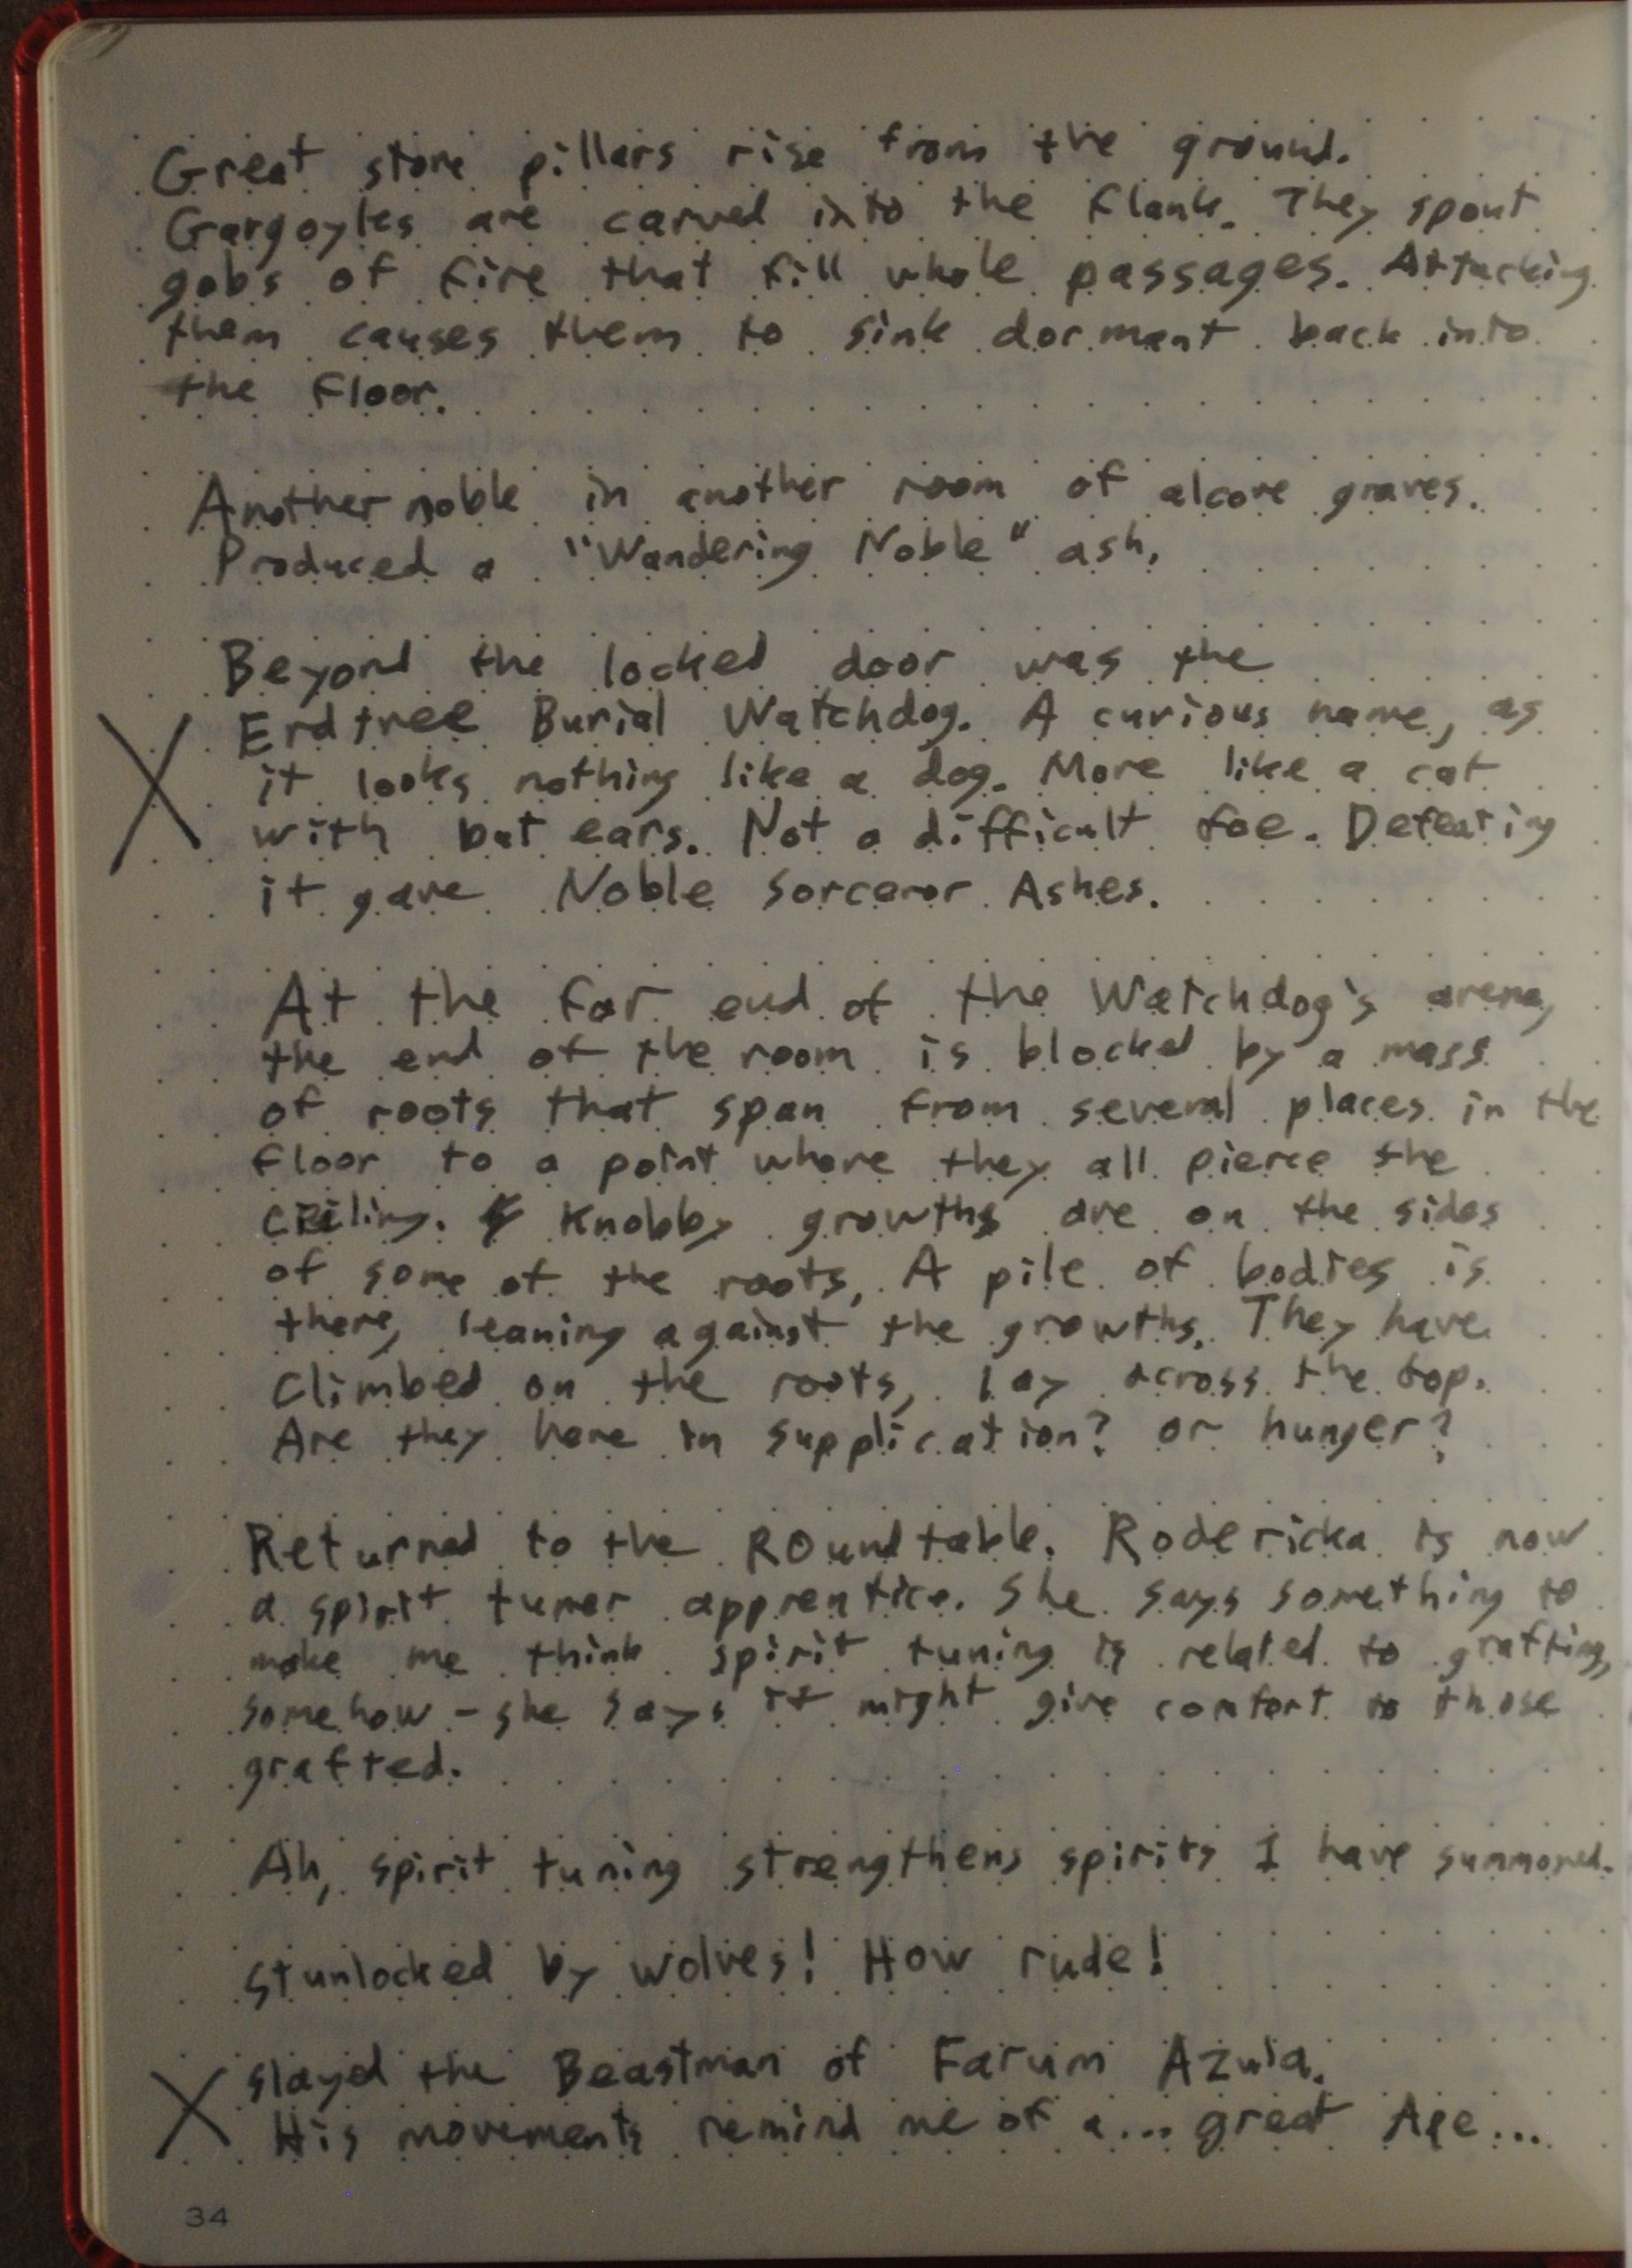 Great stone pillars rise from the ground.
Gargoyles are carved into the flank. They spout
gobs of fire that fill whole passages. Attacking
them causes them to sink dormant back into
the floor.
Another noble in another room of alcove graves.
Produced a "Wandering Noble" ash.
Beyond the locked door was the
Erdtree Burial Watchdog. A curious name, as
it looks nothing like a dog. More like a cat
with bat ears. Not a difficult foe. Defeating
it gave Noble Sorceror Ashes.
At the far end of the Watchdog's arena,
the end of the room is blocked by a mass
of roots that span from several places in the
floor to a point where they all pierce the
ceiling. Knobby growths are on the sides
of some of the roots. A pile of bodies is
there, leaning against the growths. They have
climbed on the roots, lay across the top.
Are they here in supplication? or hunger?
Returned to the Roundtable. Rodericka is now
a spirit tuner apprentice. She says something to
make me think spirit tuning is related to grafting,
somehow - she says it might give comfort to those
grafted.
Ah, spirit tuning strengthens spirits I have summoned.
Stunlocked by wolves! How rude!
X
Slayed the Beastman of Farum Azula.
His movements remind me of a... great Ape...
X
34